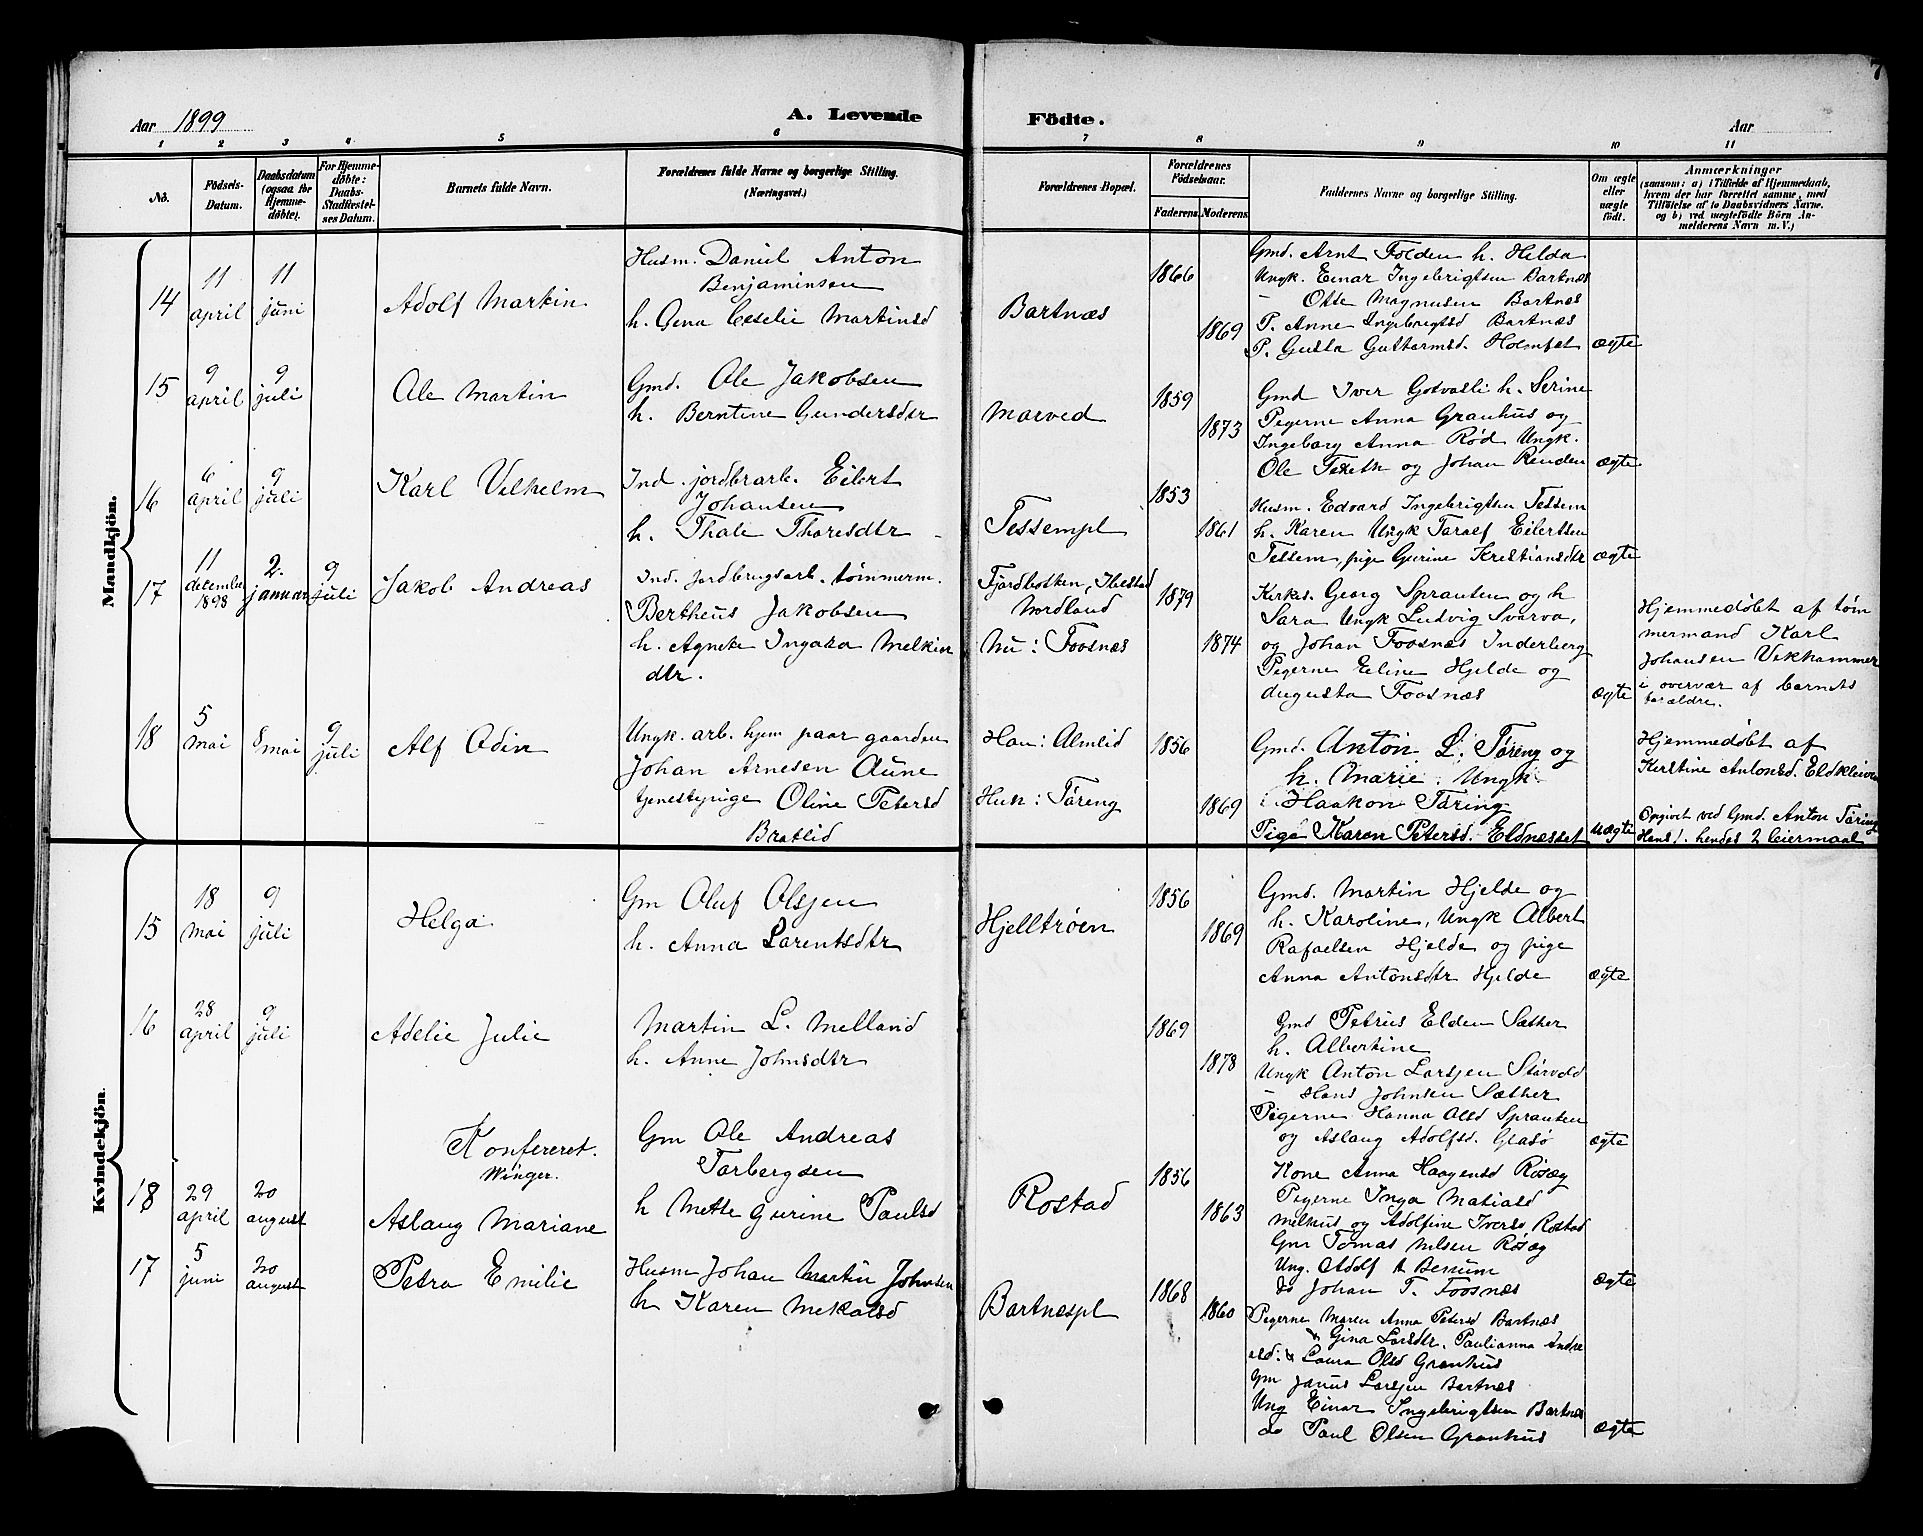 7
Aar 1899
A. Levende
Födte.
Aar
1 2 3 4 5 6 7 8 9 10 11
No.
Födsels-
Datum.
Daabsdatum
(ogsaa for
Hjemme-
döbte).
For Hjemme-
döbte:
Daabs-
Stadfæstel-
ses Datum.
Barnets fulde Navn.
Forældrenes fulde Navne og borgerlige Stilling.
(Næringsvei.)
Forældrenes Bopæl.
Forældrenes
Födselsaar.
Faderens
Moderens
Faddernes Navne og borgerlige Stilling.
Om ægte
eller
uægte
födt.
Anmærkninger
(saasom: a) i Tilfælde af Hjemmedaab,
hvem der har forrettet samme, med
Tilföielse af to Daabsvidners Navne,
og b) ved uægtefödte Börn An-
melderens Navn m. V.)
Mandkjön.
14
11
april
11
juni
Adolf Markin
Husm. Daniel Anton
Benjaminsen
h. Gena Ceselie Martinsd
Bartnæs
1866
1869
Gmd. Arnt Folden h. Helda
Ungk. Einar Ingebrigtsen Bartnæs
— Otte Magnusen Bartnæs
P. Anne Ingebrigtsd Bartnæs
P. Gusta Guttormsd. Holmset
ægte
15
9
april
9
juli
Ole Martin
Gmd. Ole Jakobsen
h. Berntine Gundersdtr
Marved
1859
1873
Gmd Iver Gotvasli h. Serine
Pegerne Anna Granhus og
Ingeborg Anna Rød Ungk.
Ole Tekseth og Johan Renden
ægte
16
6
april
9
juli
Karl Vilhelm
Ind. jordbrarb. Eilert
Johansen
h. Thale Thoresdtr
Tessempl
1853
1861
Husm. Edvard Ingebrigtsen Tessem
h. Karen Ungk Taralf Eilertsen
Tessem, pige Gurine Kristiansdtr
ægte
17
11
december
1898
2.
januar
9
juli
Jakob Andreas
Ind. jordbrugsarb. tømmerm.
Bertheus Jakobsen
h. Agnete Ingata Melkin
dtr.
Fjordbotten, Ibestad
Nordland
Nu: Foosnæs
1879
1874
Kirkes. Georg Sprauten og h
Sara Ungk Ludvig Svarva,
og Johan Foosnæs Inderberg
Pegerne Eline Hjelde og
Augusta Foosnæs
ægte
Hjemmedøbt af tøm
mermand Karl
Johansen Vikhammer
i overvær af barnets
forældre.
18
5
mai
8 mai
9
juli
Alf Odin
Ungk. arb. hjem paar gaarden
Johan Arnesen Aune
tjenestepige Oline Petersd
Bratlid
Han: Almlid
Hun: Tøreng
1856
1869
Gmd. Anton L. Tøreng og
h. Marie. Ungk.
Haakon Tøring
Pige Karen Petersd. Eldnesset
uægte
Hjemmedøbt af
Kirstine Antonsd. Eldkleiven
Opgivet ved Gmd. Anton Tøring
Hans 1. hendes 2 leiermaal
Kvindekjön.
15
18
mai
9
juli
Helga
Gm Oluf Olsjen
h. Anna Larentsdtr
Hjelltrøen
1856
1869
Gmd. Martin Hjelde og
h. Karoline, Ungk Albert
Rafaelsen Hjelde og pige
Anna Antonsdtr Hjelde
ægte
16
28
april
9
juli
Adelie Julie
Martin L. Melland
h. Anne Johnsdtr
1869
1878
Gmd Petrus Elden Sæther
h. Albertine
Ungk Anton Larsjen Størvold
— Hans Johnsen Sæther
Pegerne Hanna Olsd Sprauten
og Aslaug Adolfsd. Glasø
ægte
Konfereret.
Winger.
18
29
april
20
august
Aslaug Mariane
Gm Ole Andreas
Torbergsen
h Mette Gurine Paulsd
Rostad
1856
1863
Kone Anna Haagensd Røsæg
Pegerne Inga Matiasd
Melhus og Adolfine Iversd Rostad
Gm Tomas Nilsen Røsæg
Ung. Adolf A Bessum
do Johan T. Foosnæs
ægte
17
5
juni
20
august
Petra Emilie
Husm Johan Martin Johnsen
h Karen Mekalsd
Bartnæspl
1868
1860
Pegerne Maren Anna Petersd Bartnæs
& Gina Larsdtr. Paulianna Andre
asd. & Laura Olsd Granhus
Gm Janus Larsjen Bartnæs
Ung Einar Ingebrigtsen Bartnæs
do Paul Olsen Granhus
ægte